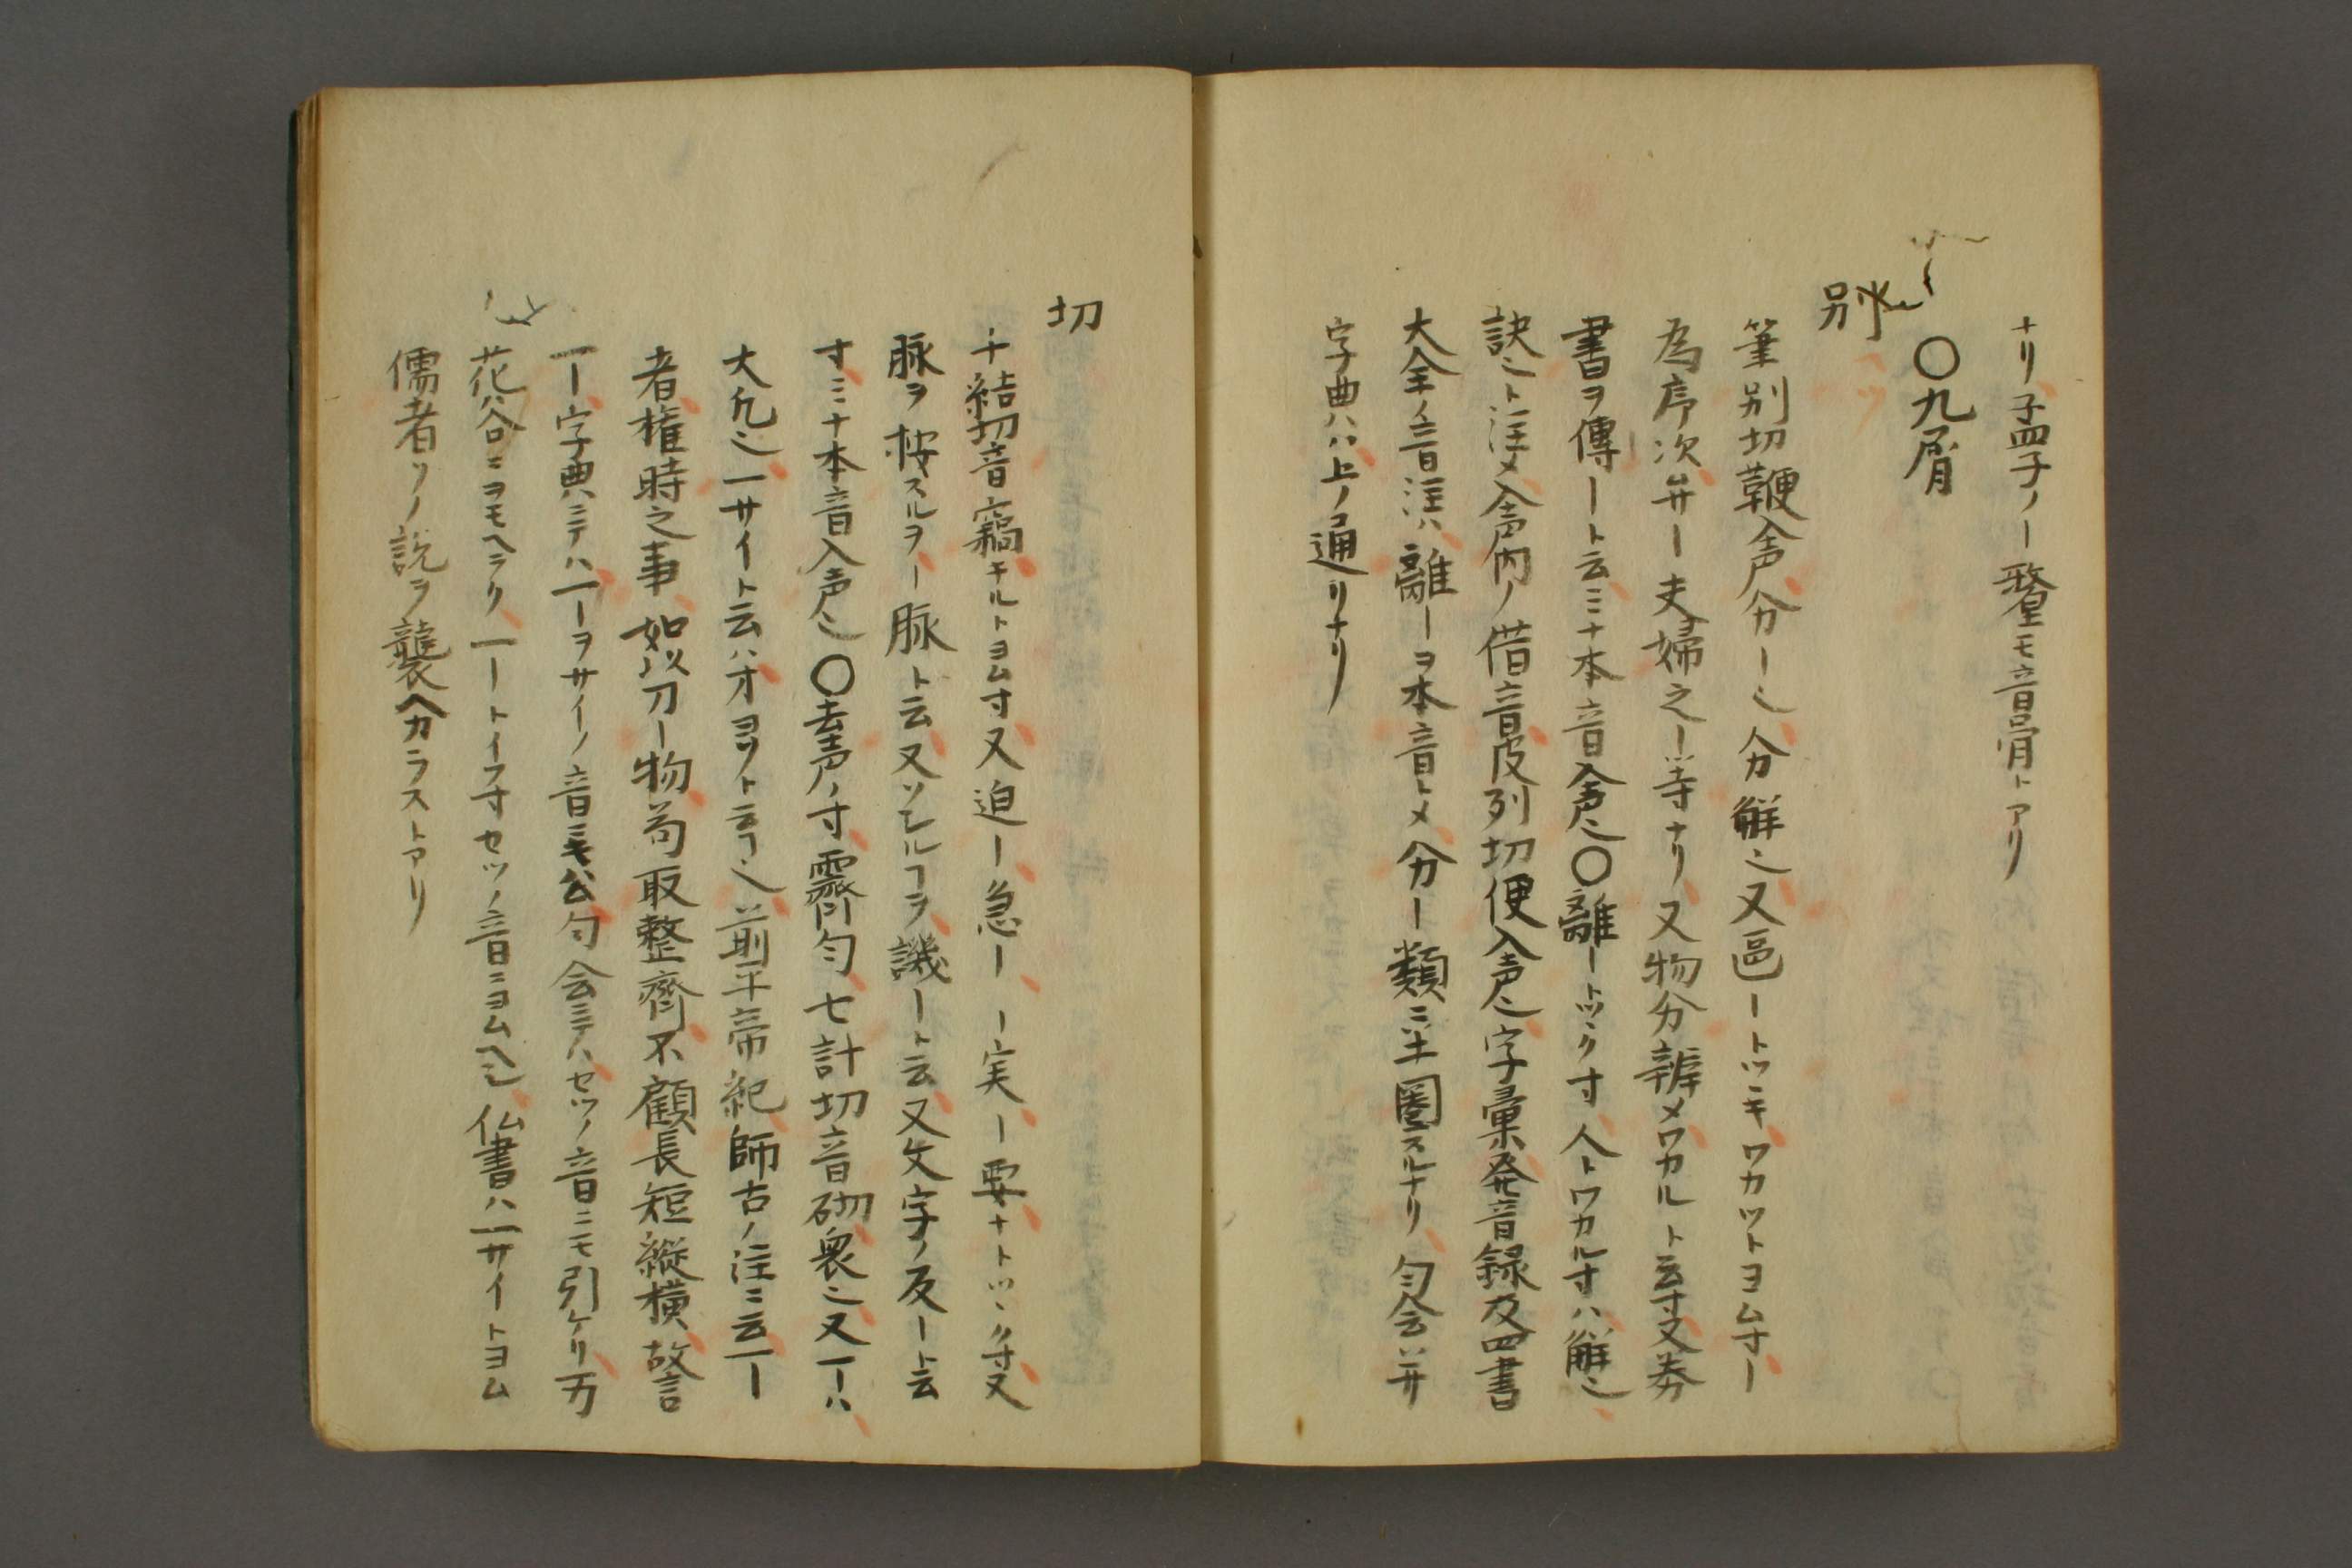 ナリ子孟子ノー盭モ音戻トアリ
〇九屑
別
ヘツ
筆別切鞭入声分ー也分解也又區ートツヽキワカツトヨム寸ー
為序次并ー夫婦之ー等ナリ又物分辨メワカルト云寸又券
書ヲ傳ート云ミナ本音入声也〇離ートツヽク寸人トワカル寸ハ解也
訣也ト注メ入声内ノ借音皮列切便入声也字彙発音録及四書
大全ノ音注ハ離ーヲ本音トメ分ー類ニ半圏スルナリ匀会并
字典ハ上ノ通リナリ
切
千結切音竊キルトヨム寸又迫ー急ーー実ー要ナトツヽク寸又
脉ヲ按スルヲー脉ト云又ソシルヿヲ譏ート云又文字ノ反ート云
寸ミナ本音入声也〇去声ノ寸霽匀七計切音砌衆也又一ーハ
大凡也一サイト云ハオヨソト云ヿ也前平帝紀師古ノ注ニ云一ー
者権時之事如以刀ー物苟取整齊不顧長短縦横故言
一ー字典ニテハ一ーヲサイノ音ニモ公匀会ニテハセツノ音ニモ引ケリ万
花谷ニヲモヘラク一ートイフ寸セツノ音ニヨムヘシ仏書ハ一サイトヨム
儒者ソノ説ヲ襲ヘカラストアリ